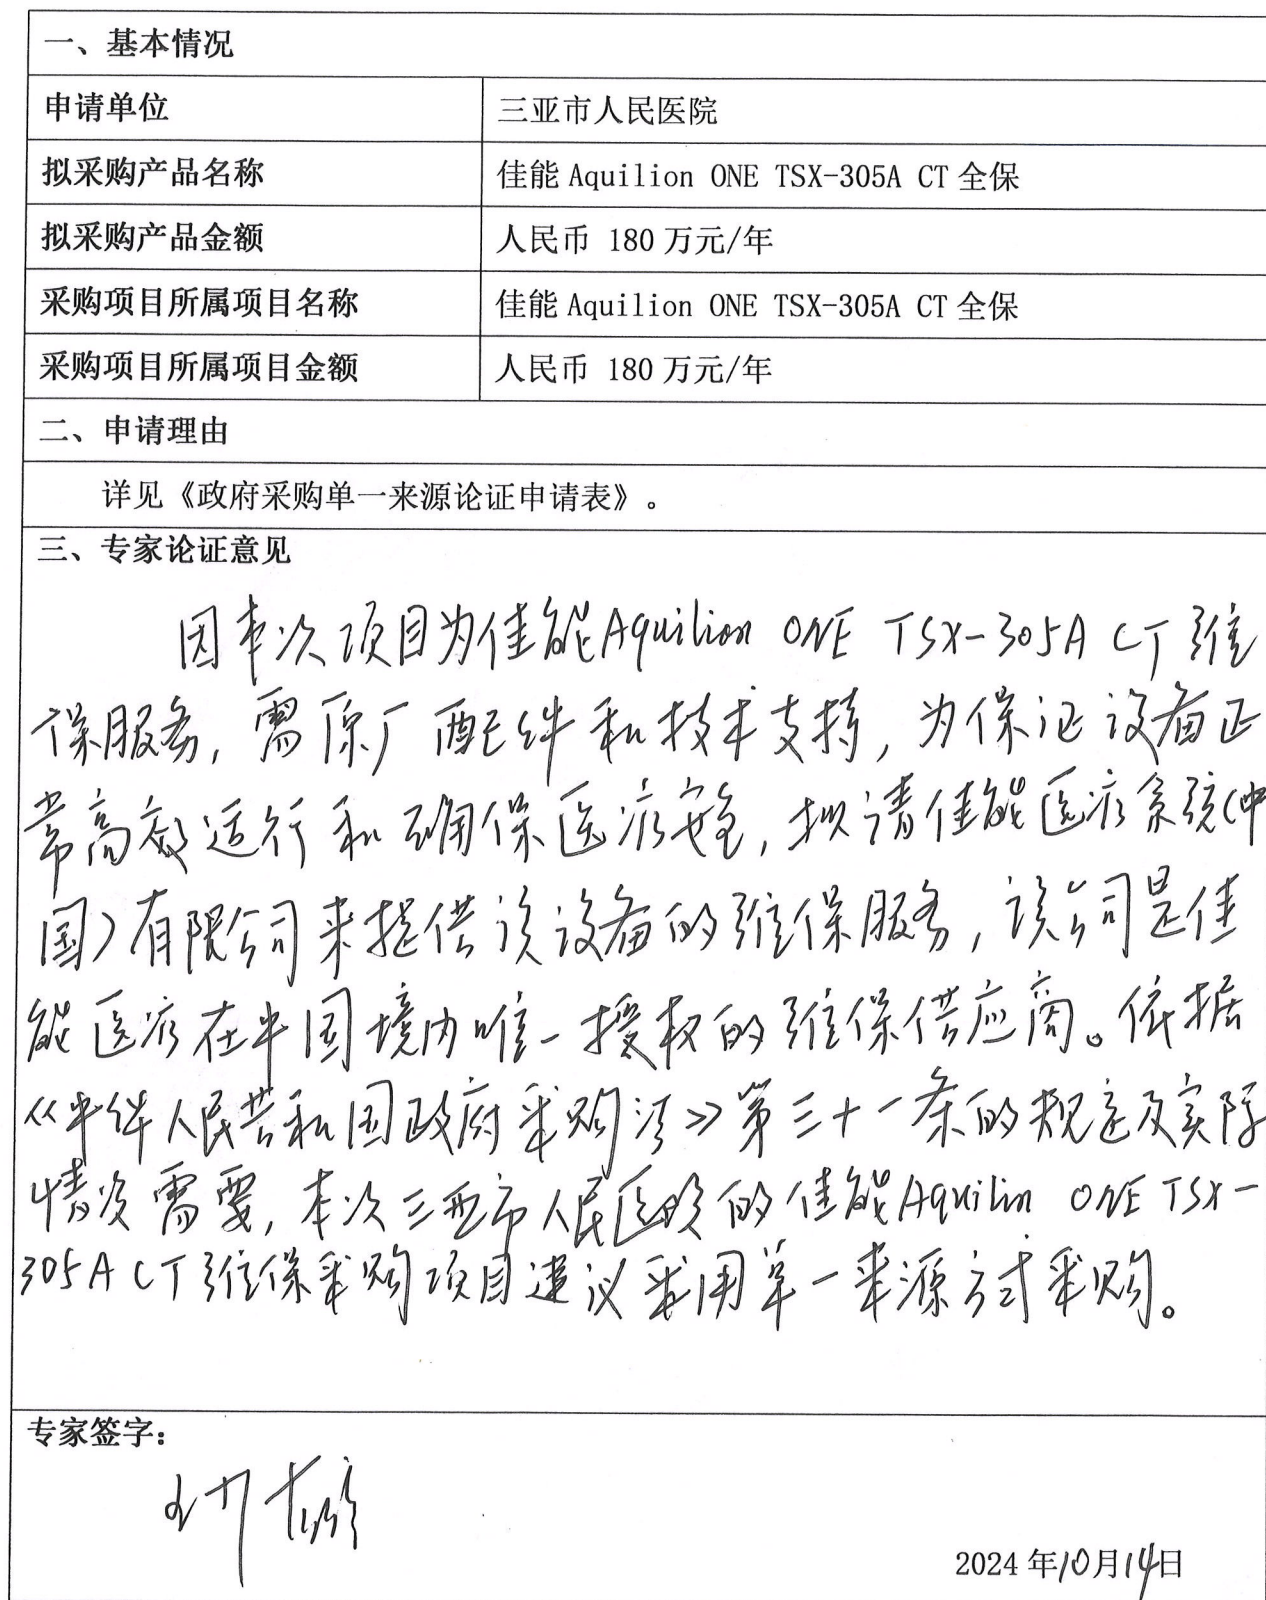 一、基本情况
申请单位 三亚市人民医院
拟采购产品名称 佳能 Aquilion ONE TSX-305A CT 全保
拟采购产品金额 人民币 180 万元/年
采购项目所属项目名称 佳能 Aquilion ONE TSX-305A CT 全保
采购项目所属项目金额 人民币 180 万元/年
二、申请理由
详见《政府采购单一来源论证申请表》。
三、专家论证意见
因本次项目为佳能Aquilion ONE TSX-305A CT 维
保服务，需原厂配件和技术支持，为保证设备正
常高效运行和确保医疗安全，拟请佳能医疗系统(中
国)有限公司来提供该设备的维保服务，该公司是佳
能医疗在中国境内唯一授权的维保供应商。依据
《中华人民共和国政府采购法》第三十一条的规定及实际
情况需要，本次三亚市人民医院的佳能Aquilin ONE TSX-
305A CT维保采购项目建议采用单一来源方式采购。
专家签字：
2024 年10月14日